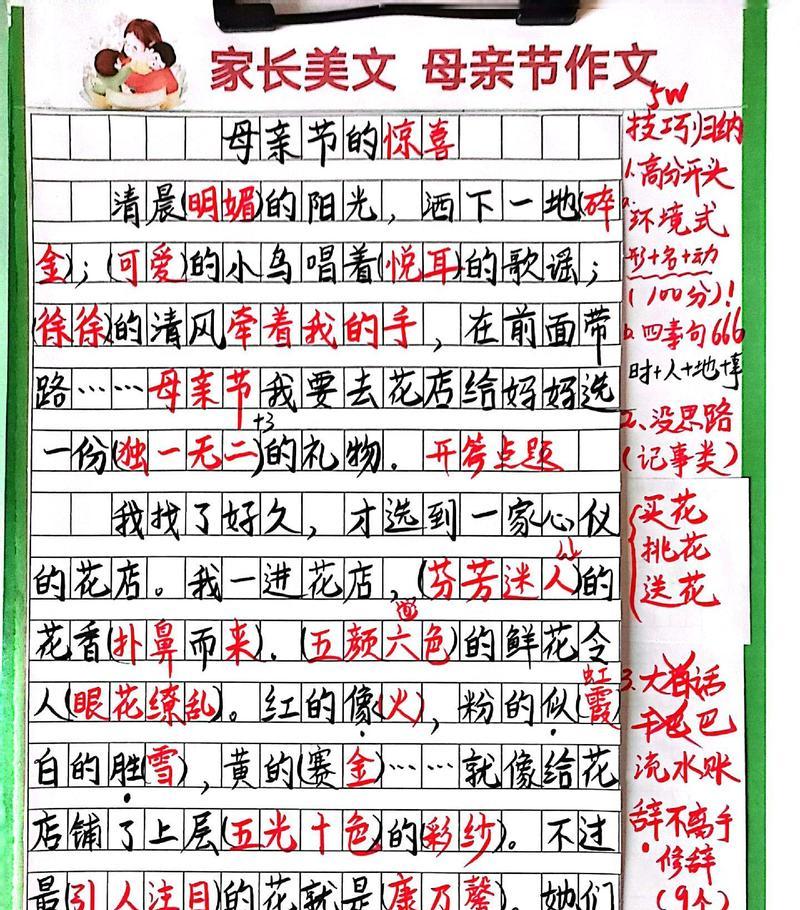 家长美文 母亲节作文
5W
母亲节的惊喜
清晨(明媚)的阳光，洒下一地(碎
金)；(可爱)的小鸟唱着(悦耳)的歌谣；
(徐徐)的清风牵着我的手，在前面带
路……母亲节我要去花店给妈妈选
+3
一份(独一无二)的礼物。开篇点题
我找了好久，才选到一家心仪
的花店。我一进花店，(芬芳迷人)的
花香(扑鼻而来)。(五颜六色)的鲜花令
人(眼花缭乱)。红的像(火)，粉的似(虹霞
白的胜(雪)，黄的(赛金)……就像给花
店铺了上层(五光十色)的(彩纱)。不过
最(引人注目)的花就是(康乃馨)。她们
技巧归纳
1.高分开头
a.环境式
形+名+动
(100分)！
b.四素句666
时+人+地+事
2、没思路
(记事类)
买花
挑花
送花
3.大白话
干巴巴
流水账
辞不离手
修辞
(9个)